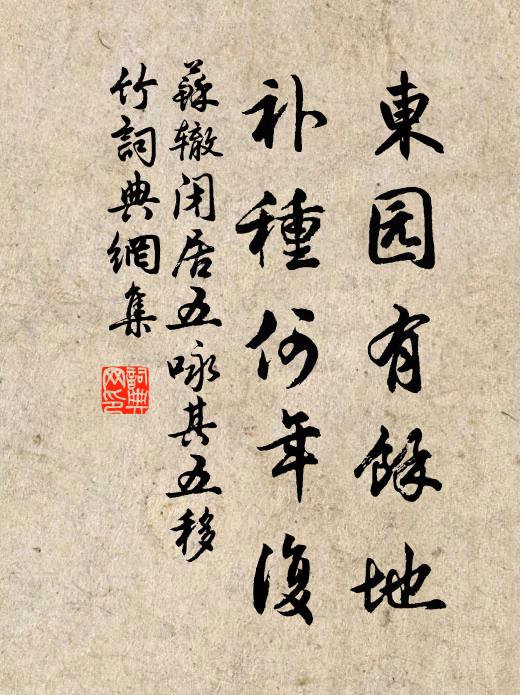 東园有餘地
补種何年復
蘇辙闭居五咏其五移
竹詞典網集
詞典
网印